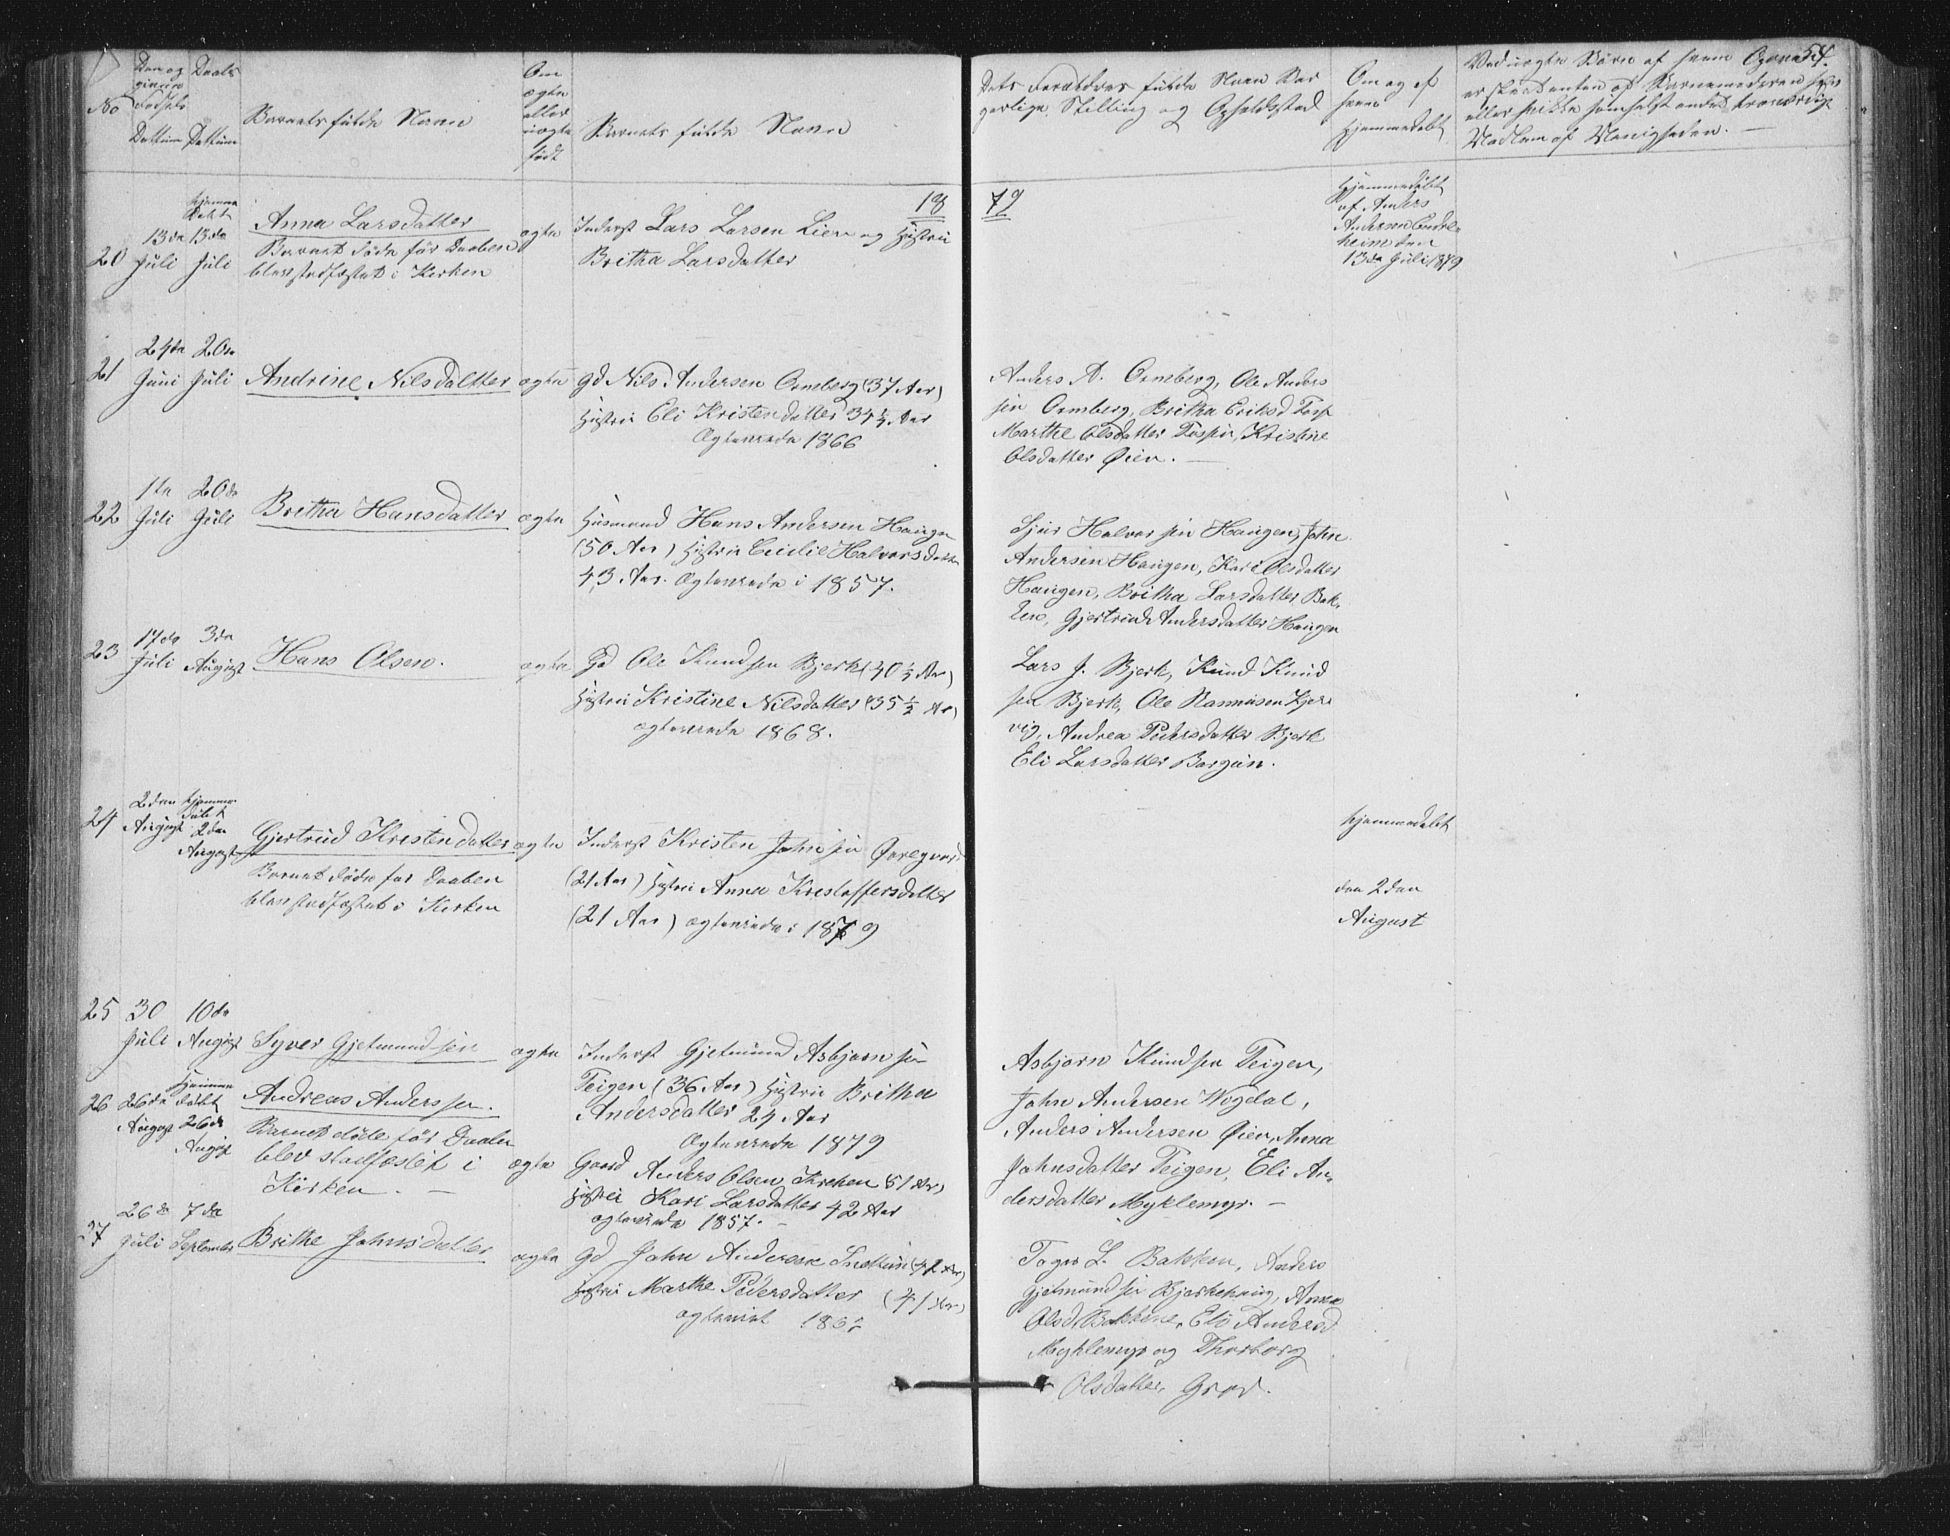 54.
No
Den og Daabs
Fødsels
Dattum Dattum
Barnets fulde Navn
Om
ægte
eller
uægte
født
Barnets fulde Navn
gerlige Stilling og Opholdssted
Om og af
hvem
hjemmedøbt
Ved uægte Børn af hvem
Vadlem af Menigheden. —
18 79
20
13de 13de
Juli Juli
Anna Larsdatter
Barnet døde før Daaben
blev stadfæstet i Kirken
ægte
Inderst Lars Larsen Lien og Hustru
Britha Larsdatter
Hjemmedøbt
af Anders
Andersen
heim den
13de Juli 1879
21
24de 20de
Juni Juli
Andrine Nilsdatter
ægte
Gd Nils Andersen Ormberg (37 Aar)
Hustru Eli Kristendatter 34½ Aar
Ægteviede 1866
Anders A. Ormberg, Ole Anders
sen Ormberg, Britha Eriksd
Marthe Olsdatter Kristine
Olsdatter Øien. —
22
1te 20de
Juli Juli
Britha Hansdatter
ægte
Husmand Hans Andersen Haugen
(50 Aar) Hustru Cecilie Halvorsdatter
43 Aar. Ægteviede i 1857.
Sjur Halvorsen Haugen, John
Andersen Haugen, Kari Olsdatter
Haugen, Britha Larsdatter Bak-
ken, Gjertrud Andersdatter Haugen
23
17de 3de
Juli August
Hans Olsen.
ægte
Gd Ole Knudsen Bjerk (40½ Aar)
Hustru Kristine Nilsdatter (35½ Aar)
ægteviede 1868.
Lars J. Bjerk, Knud Knud
sen Bjerk, Ole Rasmusen
vig, Andrea Pedersdatter Bjerk
Eli Larsdatter
24
2den hjemme-
August døbt
2den
August
Gjertrud Kristendatter
Barnet døde før Daaben
blev stadfæstet i Kirken
ægte
Inderst Kristen Johnsen
(21 Aar) Hustru Anna Kristoffersdatter
(21 Aar) ægteviede i 1879
hjemmedøbt
den 2den
August
25
30 10de
Juli August
Syver Gjetmundsen
ægte
Inderst Gjetmund Asbjørnsen
Teigen (36 Aar) Hustru Britha
Andersdatter 24 Aar
Ægteviede 1879
Asbjørn Knudsen Teigen,
John Andersen Wogdal,
Anders Andersen Øien, Anna
Johnsdatter Teigen, Eli An-
dersdatter Myklemyr. —
26
26de Hjemme
August døbt
26de
August
Andreas Anderssen.
Barnet døde før Daaben
blev stadfæstet i
Kirken. —
ægte
Gaard Anders Olsen 51 Aar)
Hustru Kari Larsdatter 42 Aar
ægteviede 1857. —
27
26de 7de
Juli September
Brithe Johnsdatter
ægte
Gd John Andersen (42 Aar)
Hustru Marthe Pedersdatter (41 Aar)
ægteviet
L. Bakken, Anders
Gjetmundsen Anna
Olsd Bakkene, Eli Andersd
Myklemyr og Thorborg
Olsdatter